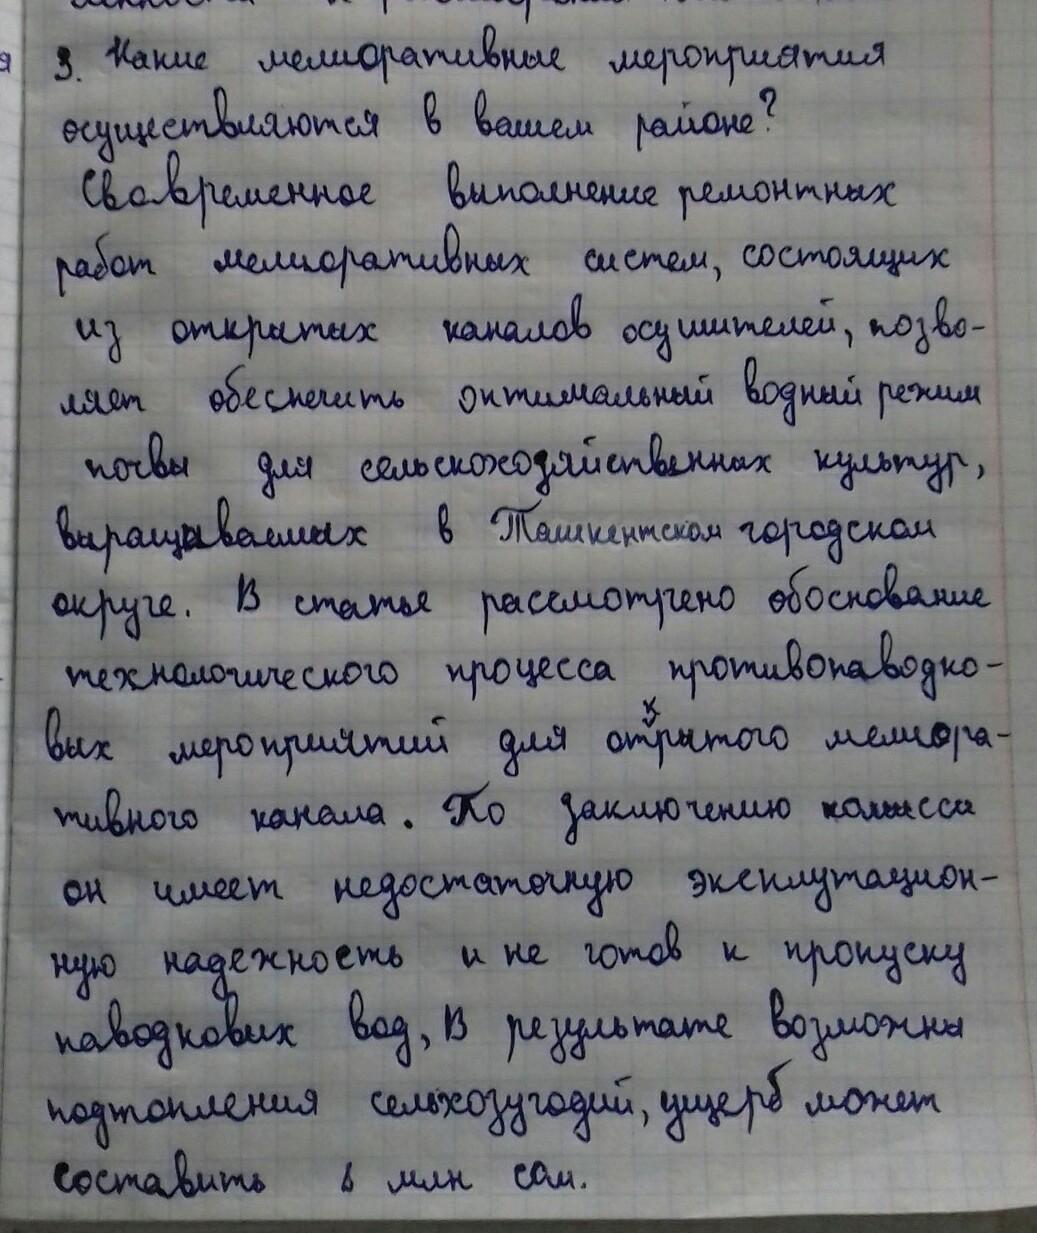 я 3. Какие мелиоративные мероприятия
осуществляются в вашем районе?
Своевременное выполнение ремонтных
работ мелиоративных систем, состоящих
из открытых каналов осушителей, позво-
ляет обеспечить оптимальный водный режим
почвы для сельскохозяйственных культур,
выращываемых в Ташкентском городском
округе. В статье рассмотрено обоснование
технологического процесса противопаводко-
вых мероприятий для открытого мелиора-
тивного канала. По заключению комисси
он имеет недостаточную эксплутацион-
ную надежность и не готов к пропуску
паводковых вод, В результате возможны
подтопления сельхозугодий, ущерб может
составить млн сом.